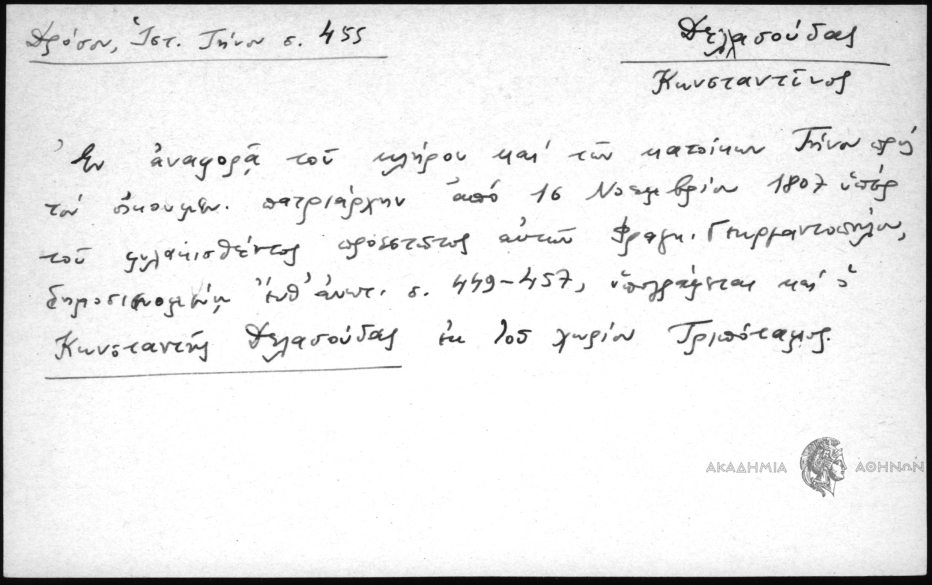 Δρόσου, Ἱστ. Τήνου σ. 455
Δελασούδας
Κωνσταντῖνος
Ἐν ἀναφορᾷ τοῦ κλήρου καὶ τῶν κατοίκων Τήνου πρὸς
τὸν οἰκουμεν. πατριάρχην ἀπό 16 Νοεμβρίου 1807 ὑπὲρ
τοῦ φυλακισθέντος προεστῶτος αὐτῶν Φραγκ.
δημοσιευομένῃ ἔνθ' ἀνωτ. σ. 449-457, ὑπογράφεται καὶ ὁ
Κωνσταντῆς Δελασούδας ἐκ τοῦ χωρίου Τριπόταμος.
ΑΚΑΔΗΜΙΑ ΑΘΗΝΩΝ